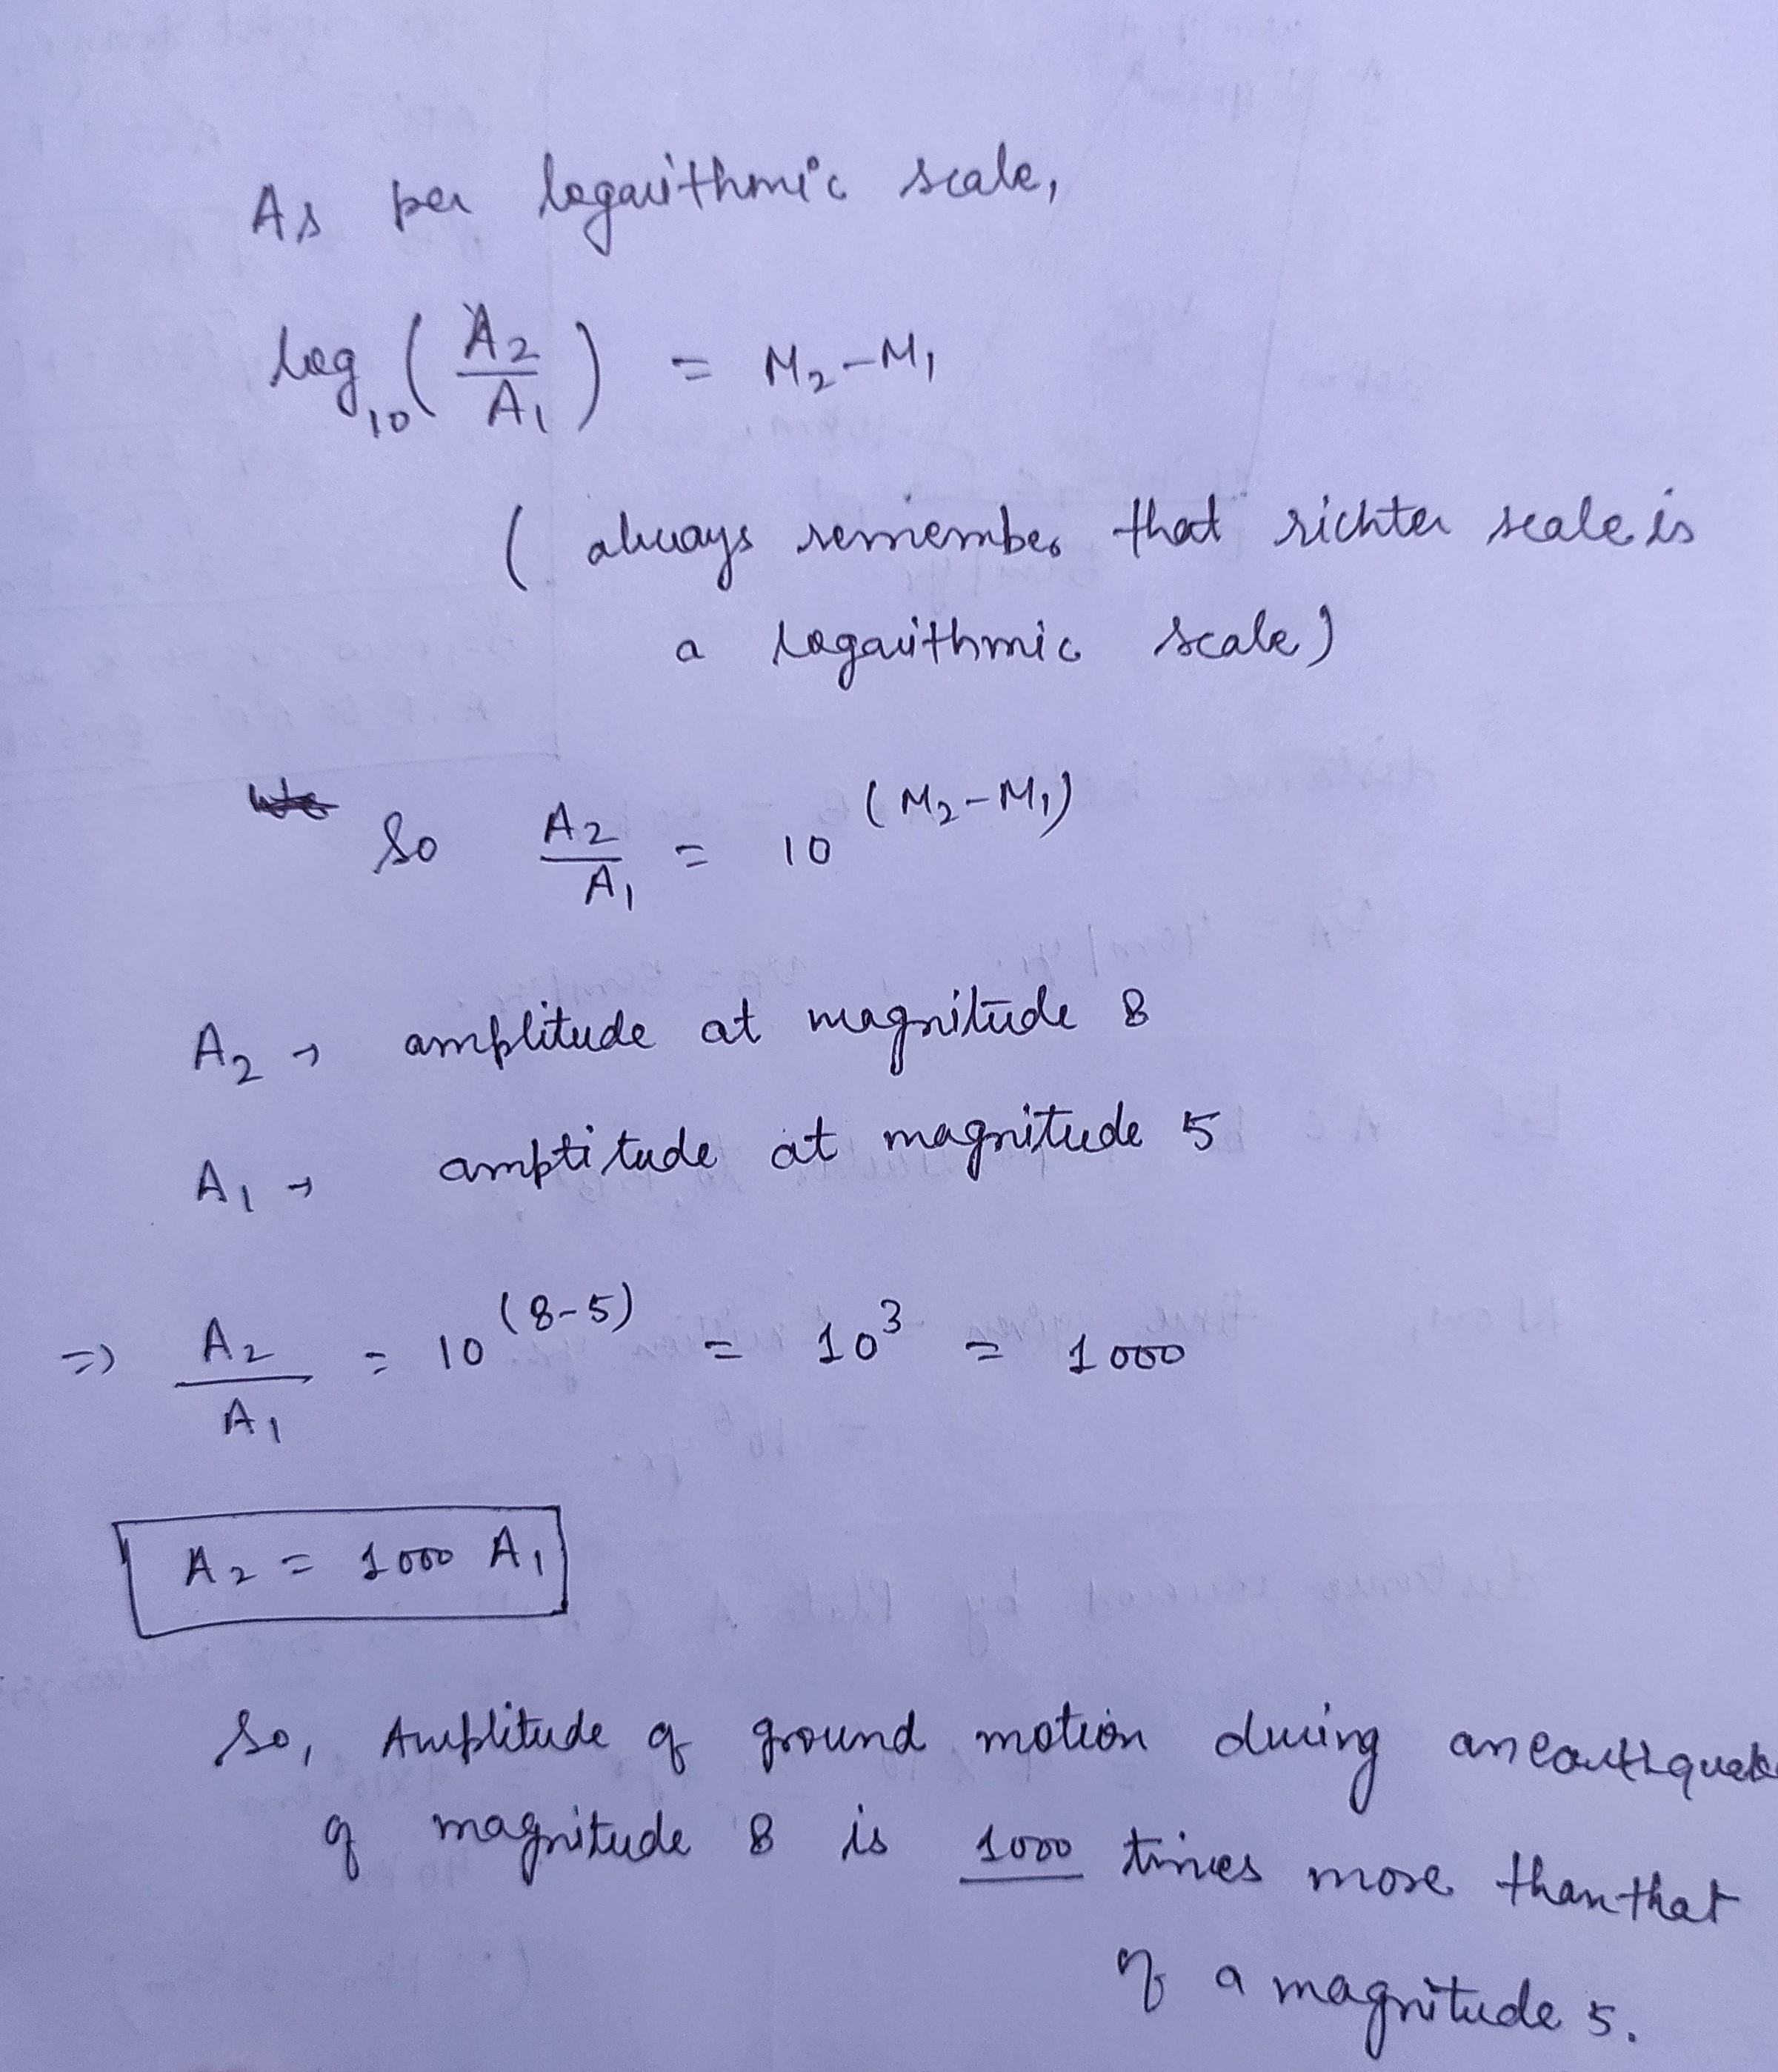 As per logarithmic scale,
log₁₀ ( A₂ / A₁ ) = M₂ - M₁
( always remember that richter scale is
a logarithmic scale )
So A₂ / A₁ = 10^(M₂ - M₁)
A₂ → amplitude at magnitude 8
A₁ → amptitude at magnitude 5
=> A₂ / A₁ = 10^(8-5) = 10³ = 1000
A₂ = 1000 A₁
So, Amplitude of ground motion during an earthquake
of magnitude 8 is 1000 times more than that
of a magnitude 5.